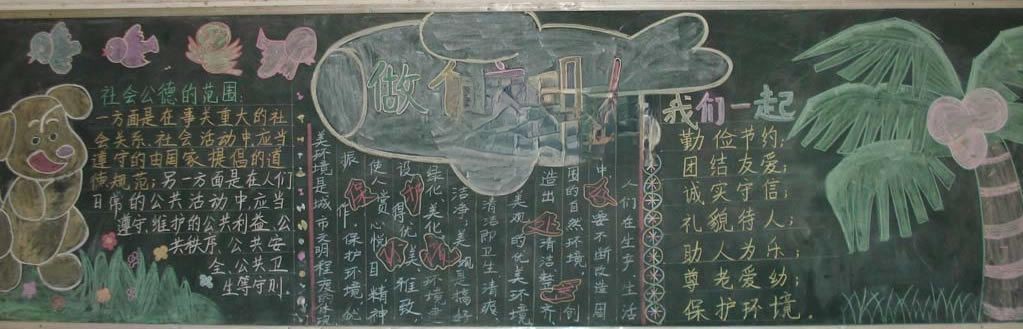 社会公德的范围:
一方面是在事关重大的社
会关系、社会活动中应当
遵守的由国家提倡的道
德规范;另一方面是在人们
日常的公共活动中应当
遵守、维护的公共利益、公
共秩序、公共安
全、公共卫
生等守则
做
人们在生产、生活
中,要不断改造周
围的自然环境,创
造出清洁整齐、
美观的优美环境
清洁即卫生清爽、
洁净,美观是搞好
绿化、美化
设得优美、雅致,
使人赏心悦目、精神
振作,保护环境的
我们一起
勤俭节约;
团结友爱;
诚实守信;
礼貌待人;
助人为乐;
尊老爱幼;
保护环境.